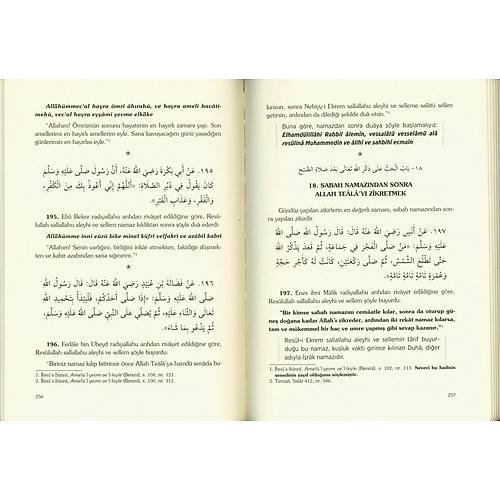 Allâhümmec'al hayra ömrî âhırahü, ve hayra amelî havâtî-
mehü, vec'al hayra eyyâmî yevme elkâke
"Allahım! Ömrümün sonunu hayatımın en hayırlı zamanı yap. Son
amellerimi en hayırlı amellerim eyle. Sana kavuşacağım günü yaşadığım
günlerimin en hayırlısı eyle."¹
*
١٩٥. عَنْ أَبِي بَكْرَةَ رَضِيَ اللهُ عَنْهُ، أَنَّ رَسُولَ اللهِ صَلَّى اللهُ عَلَيْهِ وَسَلَّمَ
كَانَ يَقُولُ فِي دُبُرِ الصَّلَاةِ: «اَللّٰهُمَّ إِنِّي أَعُوذُ بِكَ مِنَ الْكُفْرِ،
وَالْفَقْرِ، وَعَذَابِ الْقَبْرِ».
195. Ebû Bekre radıyallahu anhdan rivâyet edildiğine göre, Resû-
lullah sallallahu aleyhi ve sellem namaz kıldıktan sonra şöyle dua ederdi:
Allâhümme innî eûzü bike minel küfri velfakri ve azâbil kabri
"Allahım! Senin varlığını, birliğini inkâr etmekten, fakirliğe düşmek-
ten ve kabir azabından sana sığınırım."²
*
١٩٦. عَنْ فَضَالَةَ بْنِ عُبَيْدٍ رَضِيَ اللهُ عَنْهُ قَالَ: قَالَ رَسُولُ اللهِ
صَلَّى اللهُ عَلَيْهِ وَسَلَّمَ: «إِذَا صَلَّى أَحَدُكُمْ، فَلْيَبْدَأْ بِتَحْمِيدِ اللهِ
تَعَالَى وَالثَّنَاءِ عَلَيْهِ، ثُمَّ يُصَلِّي عَلَى النَّبِيِّ صَلَّى اللهُ عَلَيْهِ وَسَلَّمَ،
ثُمَّ يَدْعُو بِمَا شَاءَ».
196. Fedâle bin Ubeyd radıyallahu anhdan rivâyet edildiğine göre,
Resûlullah sallallahu aleyhi ve sellem şöyle buyurdu:
"Biriniz namaz kılıp bitirince önce Allah Teâlâ'ya hamdü senâda bu-
1. İbnü's-Sünnî, Amelü'l-yevm ve'l-leyle (Berenî), s. 109, nr. 121.
2. İbnü's-Sünnî, Amelü'l-yevm ve'l-leyle (Berenî), s. 100, nr. 111.
256
lunsun, sonra Nebiyy-i Ekrem sallallahu aleyhi ve selleme salâtü selâm
getirsin, ardından da dilediği şekilde duâ etsin."¹
Buna göre, namazdan sonra duâya şöyle başlamalıyız:
Elhamdülillâhi Rabbil âlemîn, vessalâtü vesselâmü alâ
resûlinâ Muhammedin ve âlihî ve sahbihî ecmaîn
١٨- بَابُ الْحَثِّ عَلَى ذِكْرِ اللهِ تَعَالَى بَعْدَ صَلَاةِ الصُّبْحِ
18. SABAH NAMAZINDAN SONRA
ALLAH TEÂLÂ'YI ZİKRETMEK
Gündüz yapılan zikirlerin en değerli zamanı, sabah namazından son-
ra yapılan zikirdir.
١٩٧. عَنْ أَنَسٍ رَضِيَ اللهُ عَنْهُ قَالَ: قَالَ رَسُولُ اللهِ صَلَّى اللهُ
عَلَيْهِ وَسَلَّمَ: «مَنْ صَلَّى الْفَجْرَ فِي جَمَاعَةٍ، ثُمَّ قَعَدَ يَذْكُرُ اللهَ
حَتَّى تَطْلُعَ الشَّمْسُ، ثُمَّ صَلَّى رَكْعَتَيْنِ، كَانَتْ لَهُ كَأَجْرِ حَجَّةٍ
وَعُمْرَةٍ تَامَّةٍ تَامَّةٍ تَامَّةٍ».
197. Enes ibni Mâlik radıyallahu anhdan rivâyet edildiğine göre,
Resûlullah sallallahu aleyhi ve sellem şöyle buyurdu:
"Bir kimse sabah namazını cemâatle kılar, sonra da oturup gü-
neş doğana kadar Allah'ı zikreder, ardından iki rekât namaz kılarsa,
tam ve mükemmel bir hac ve umre yapmış gibi sevap kazanır."²
Resûl-i Ekrem sallallahu aleyhi ve sellemin târif buyur-
duğu bu namaz, kuşluk vakti girince kılınan Duhâ, diğer
adıyla İşrâk namazıdır.
1. İbnü's-Sünnî, Amelü'l-yevm ve'l-leyle (Berenî), s. 102, nr. 113. Nevevî bu hadisin
senedinin zayıf olduğunu söylemiştir.
2. Tirmizî, Salât 412, nr. 586.
257